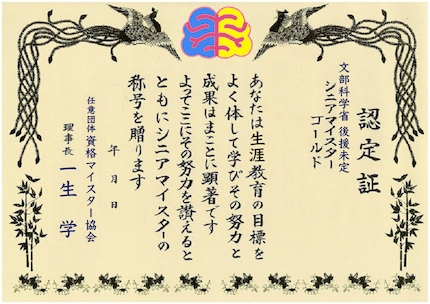 認定証
文部科学省 後援未定
シニアマイスター
ゴールド
あなたは生涯教育の目標を
よく体して学びその努力と
成果はまことに顕著です
よってここにその努力を讃えると
ともにシニアマイスターの
称号を贈ります
年 月 日
任意団体 資格マイスター協会
理事長 一生 学